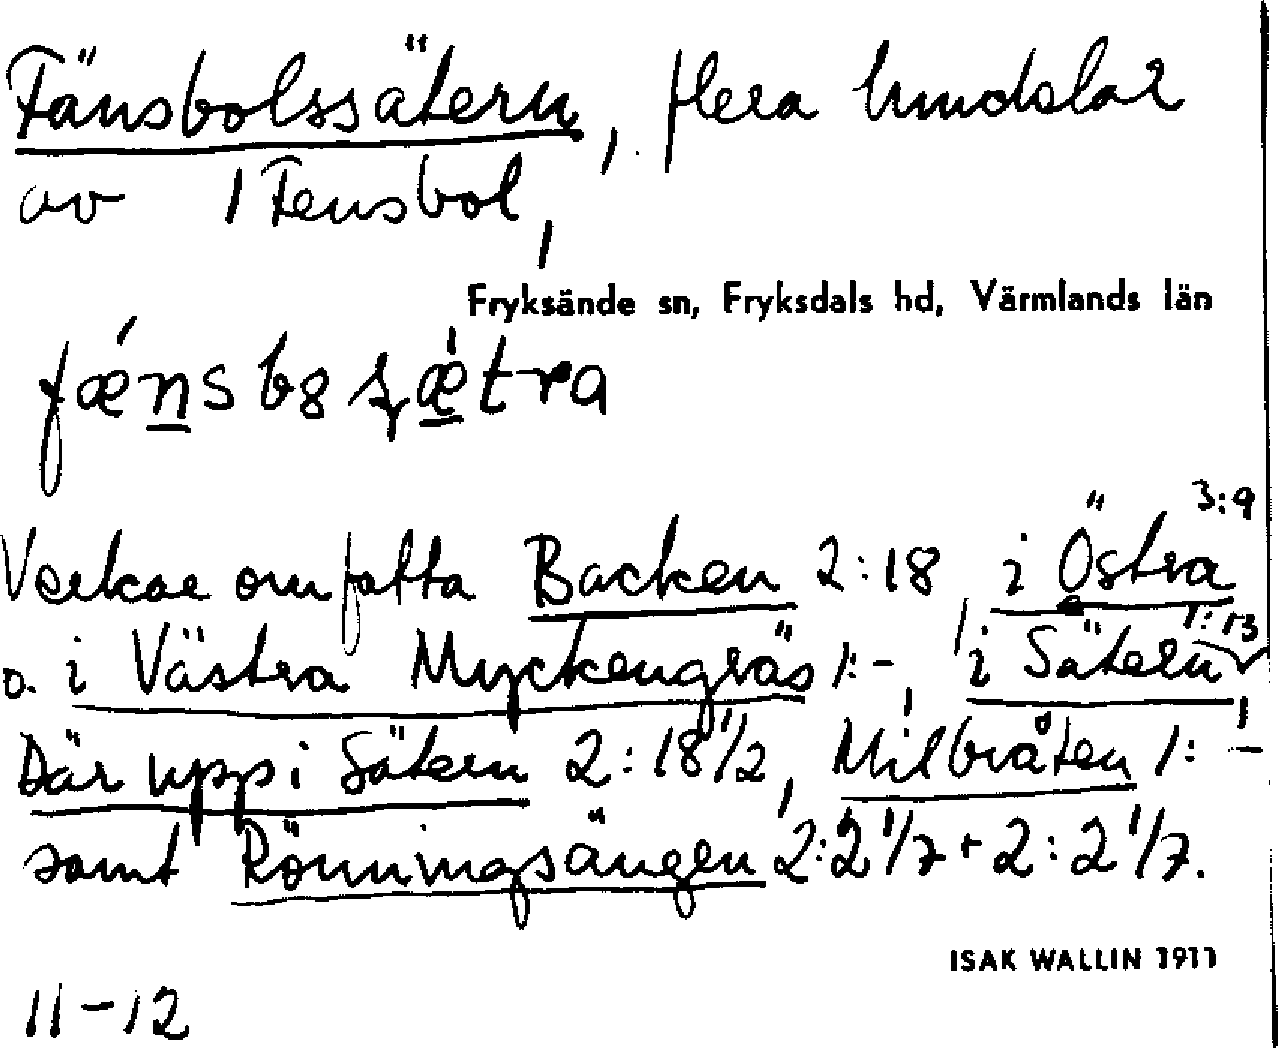 Fänsbolssätern, flera hmdslar
av 1 Fensbol,
Fryksände sn, Fryksdals hd, Värmlands län
fǽnsbs sǽtra
3:9
Verkar omfatta Backen 2:18, i Östra
1:13
o. i Västra Myckengräs 1:-, i Sätern,
Där upp i Sätern 2:18 1/2, Milbråten 1:-
samt Rönningsängen 2:2 1/7 + 2:2 1/7.
ISAK WALLIN 1911
11-12